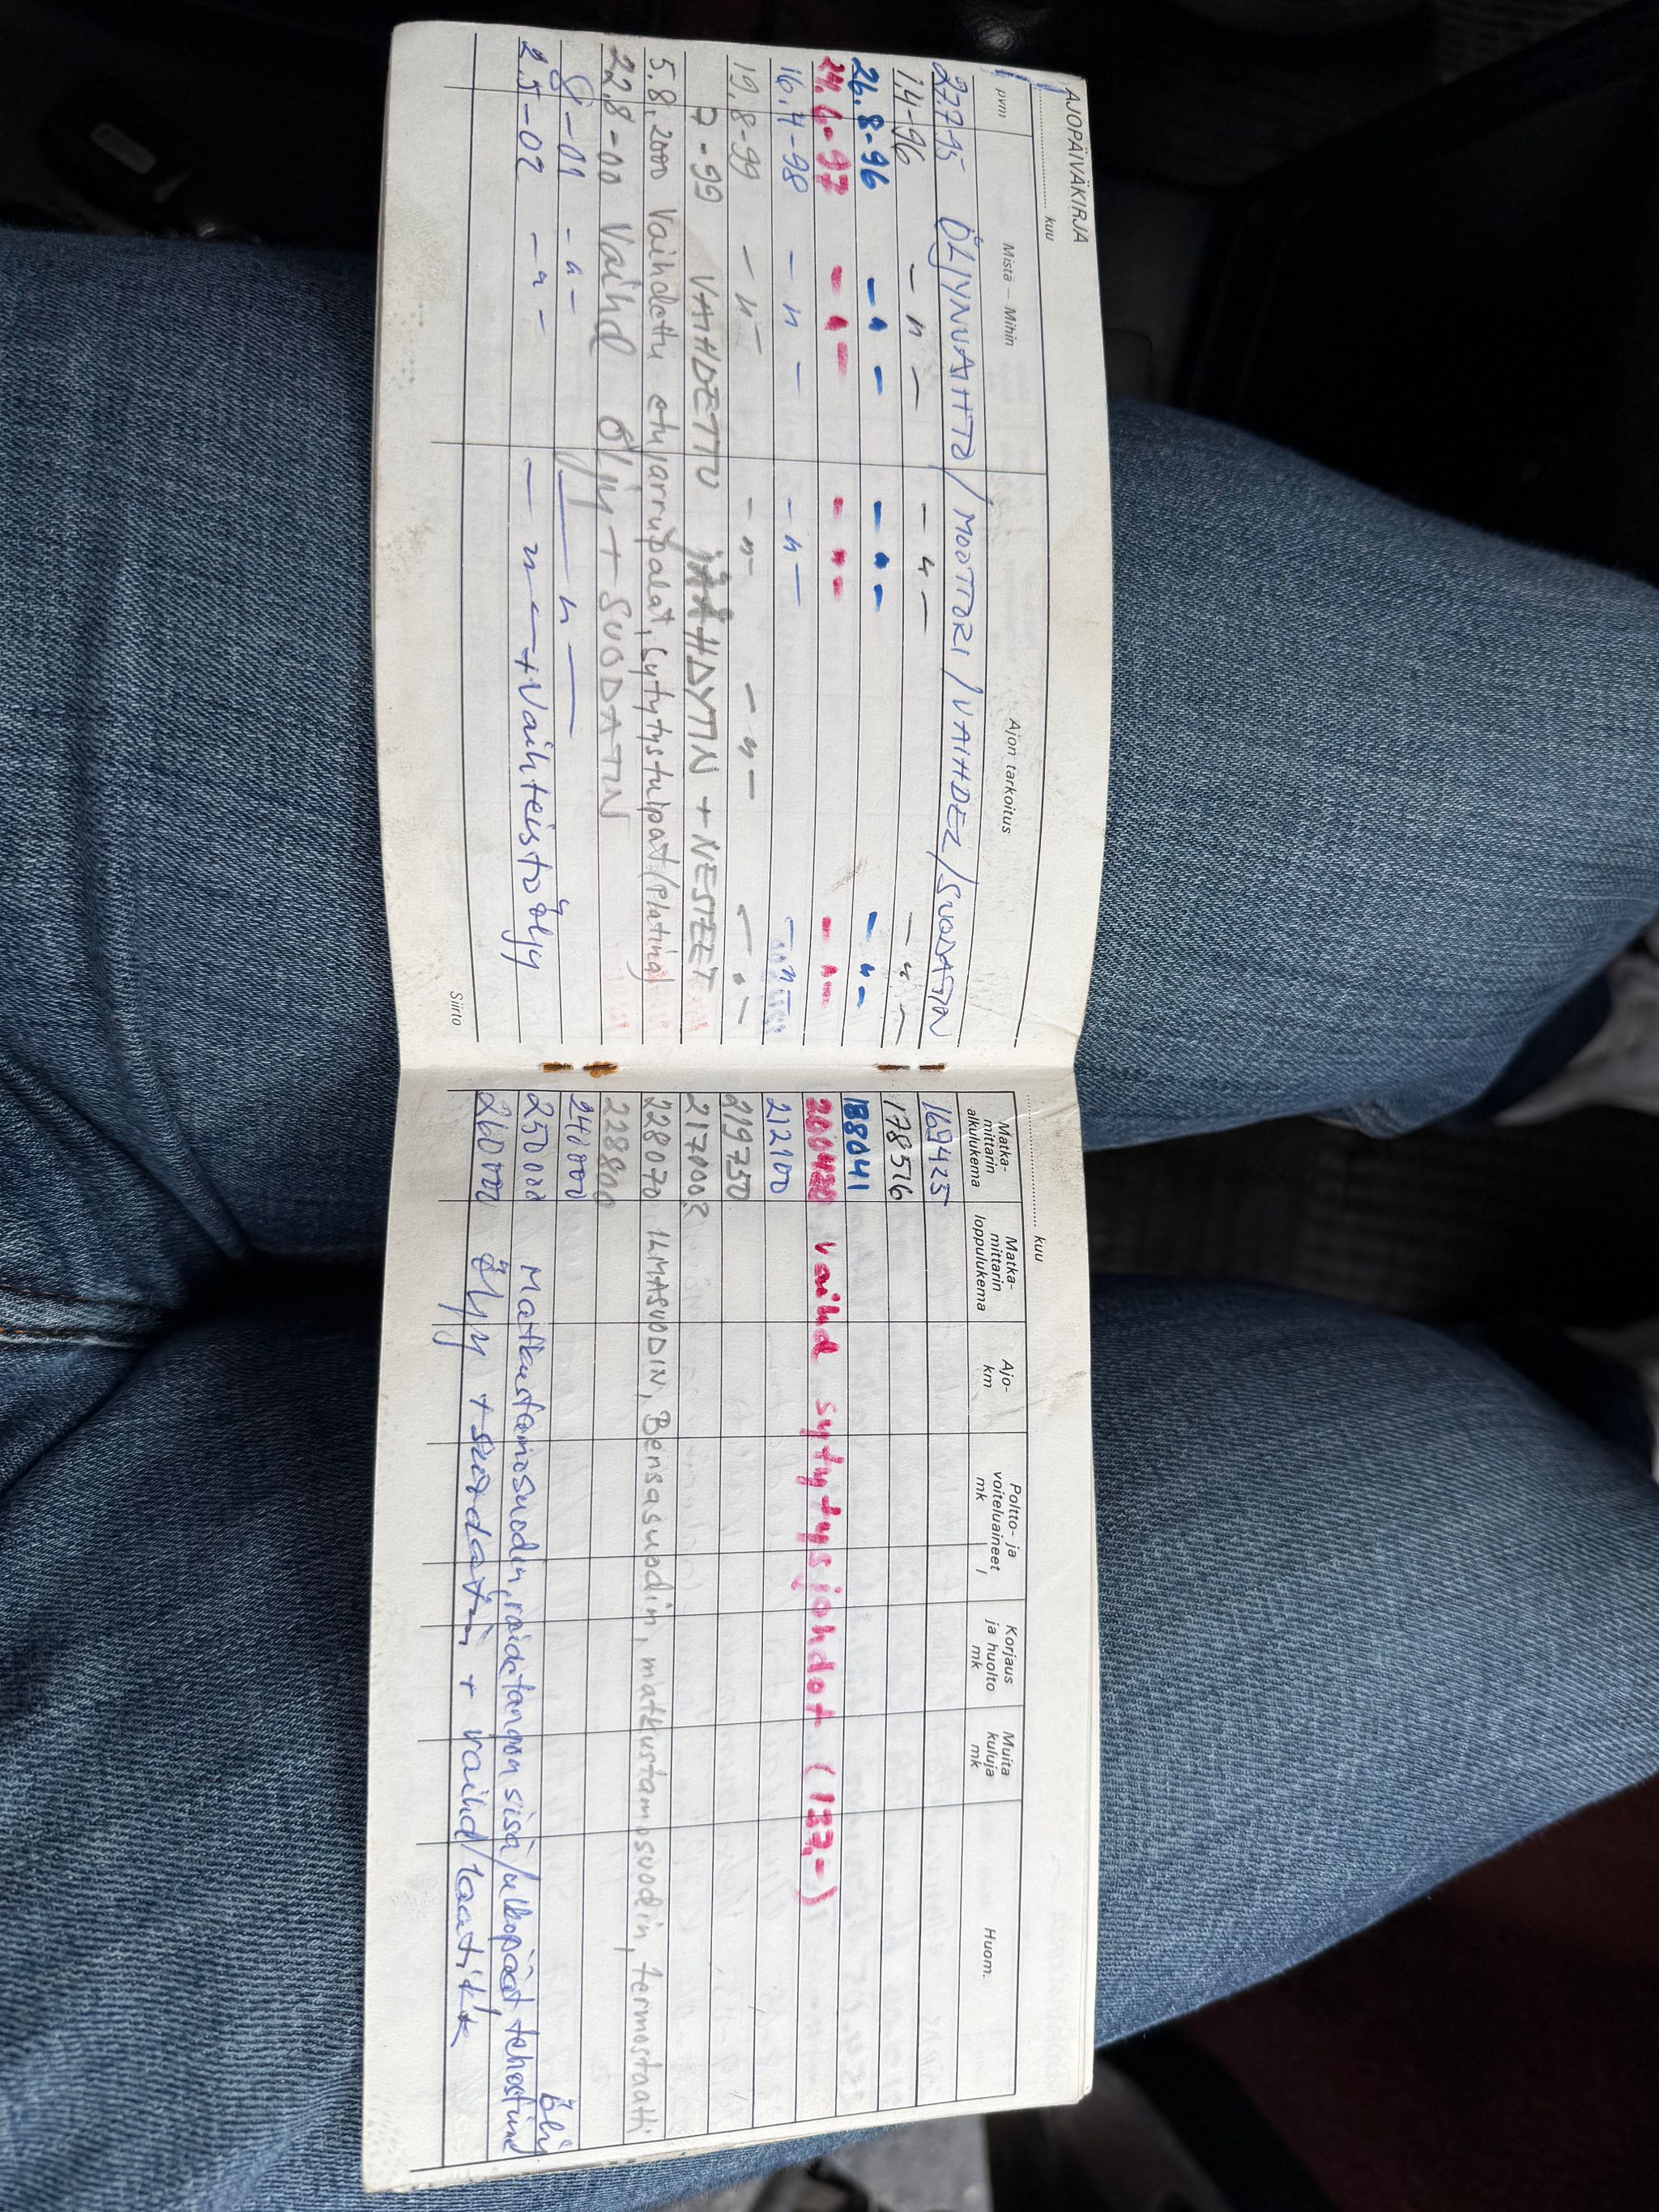 AJOPÄIVÄKIRJA
kuu
pvm Mistä – Mihin Ajon tarkoitus
27.7.95 ÖLJYNVAIHTO / MOOTTORI / VAIHDEL / SUODATIN
1.4-96 - " - - " - - " -
26.8-96 - " - - " - - " -
24.6-97 - " - - " - - " -
16.7-98 - " - - " - - " -
19.8-99 - " - - " - - " - - " -
7-99 VAIHDETTU JÄÄHDYTIN + NESTEET
5.8.2000 Vaihdettu etujarrupalat, sytytystulpat (Platina)
22.8-00 Vaihd öljy + SUODATIN
8-01 - " - - " -
2.5-02 - " - - " - + Vaihteistoöljy
Siirto
kuu
Matka-mittarin alkulukema Matka-mittarin loppulukema Ajo-km Poltto- ja voiteluaineet l mk Korjaus ja huolto mk Muita kuluja mk Huom.
169425
178516
188041
200420 vaihd sytytysjohdot (137,-)
212100
219750
217000?
228070 ILMASUODIN, Bensasuodin, matkustamosuodin, termostaatti
228800
240000
250000 Matkustamosuodin, raidetangon sisä/ulkopäät
260000 öljy + suodatin + vaihd/laatikk